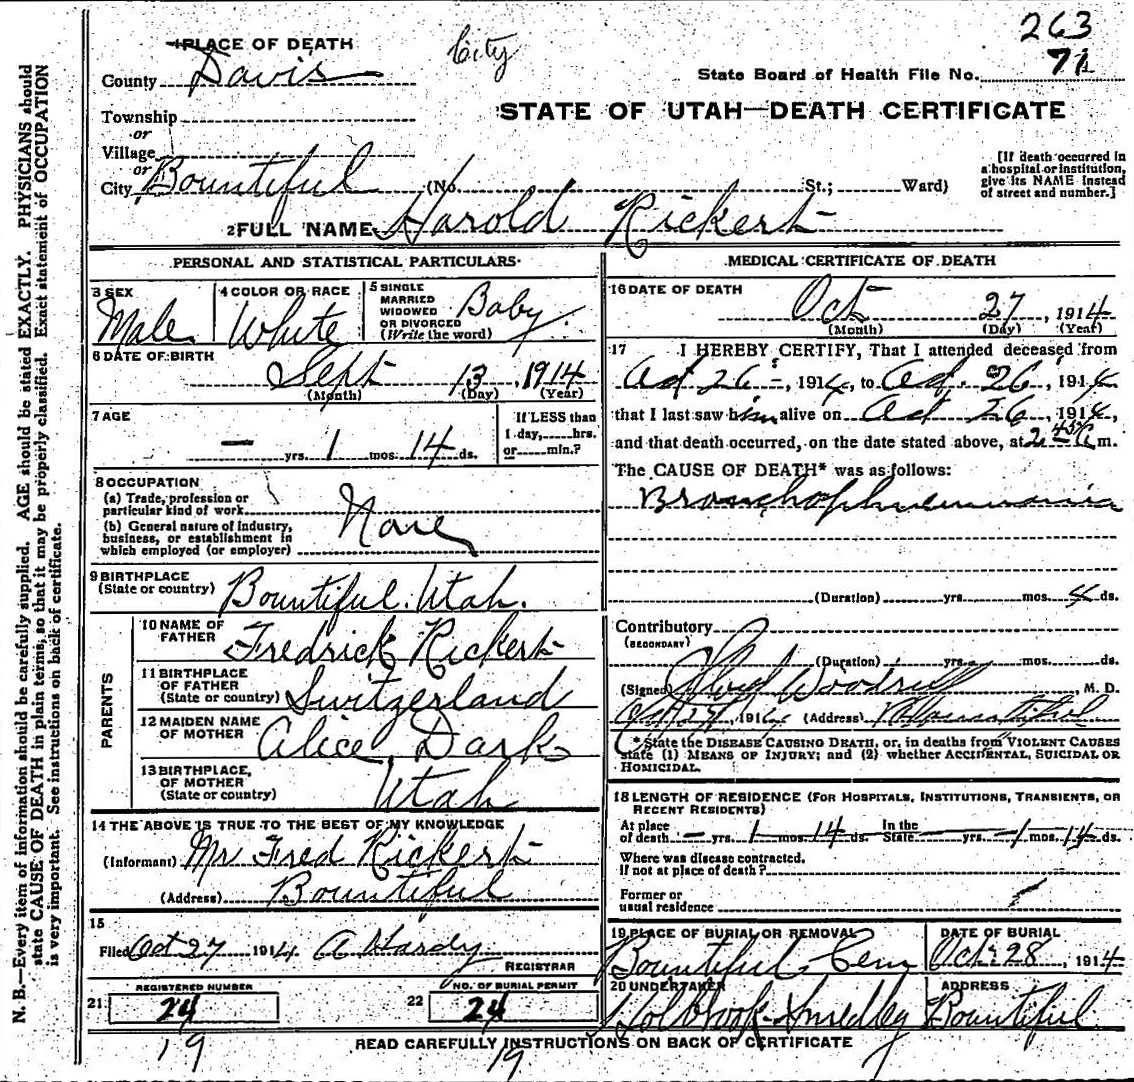 263
City
1 PLACE OF DEATH
71
County Davis
State Board of Health File No.
Township
STATE OF UTAH—DEATH CERTIFICATE
or
Village
or
City Bountiful (No. St.; Ward)
[If death occurred in
a hospital or institution,
give its NAME instead
of street and number.]
2 FULL NAME Harold Rickert
PERSONAL AND STATISTICAL PARTICULARS
3 SEX
Male
4 COLOR OR RACE
White
5 SINGLE
MARRIED
WIDOWED
OR DIVORCED
(Write the word)
Baby.
6 DATE OF BIRTH
Sept 13, 1914
(Month) (Day) (Year)
7 AGE
— yrs. 1 mos. 14 ds.
If LESS than
1 day, hrs.
or min.?
8 OCCUPATION
(a) Trade, profession or
particular kind of work
(b) General nature of industry,
business, or establishment in
which employed (or employer)
None
9 BIRTHPLACE
(State or country)
Bountiful. Utah.
PARENTS
10 NAME OF
FATHER
Fredrick Rickert
11 BIRTHPLACE
OF FATHER
(State or country)
Switzerland
12 MAIDEN NAME
OF MOTHER
Alice Dark
13 BIRTHPLACE,
OF MOTHER
(State or country)
Utah
14 THE ABOVE IS TRUE TO THE BEST OF MY KNOWLEDGE
(Informant) Mr Fred Rickert
(Address) Bountiful
15
Filed Oct 27 1914 A Hardy
REGISTRAR
REGISTERED NUMBER
21 24
NO. OF BURIAL PERMIT
22 24
MEDICAL CERTIFICATE OF DEATH
16 DATE OF DEATH
Oct 27, 1914
(Month) (Day) (Year)
17 I HEREBY CERTIFY, That I attended deceased from
Oct 26, 1914, to Oct. 26, 1914
that I last saw him alive on Oct 26, 1914,
and that death occurred, on the date stated above, at 2 45 A m.
The CAUSE OF DEATH* was as follows:
(Duration) yrs. mos. 4 ds.
Contributory
(SECONDARY)
(Duration) yrs. mos. ds.
(Signed) M. D.
Oct 27, 1914 (Address) Bountiful
* State the DISEASE CAUSING DEATH, or, in deaths from VIOLENT CAUSES
state (1) MEANS OF INJURY; and (2) whether ACCIDENTAL, SUICIDAL OR
HOMICIDAL.
18 LENGTH OF RESIDENCE (FOR HOSPITALS, INSTITUTIONS, TRANSIENTS, OR
RECENT RESIDENTS)
At place
of death — yrs. 1 mos. 14 ds. In the
State — yrs. 1 mos. 14 ds.
Where was disease contracted.
if not at place of death?
Former or
usual residence
19 PLACE OF BURIAL OR REMOVAL
Bountiful Cem
DATE OF BURIAL
Oct 28, 1914
20 UNDERTAKER
Holbrook Smedley
ADDRESS
Bountiful
READ CAREFULLY INSTRUCTIONS ON BACK OF CERTIFICATE
19
19
N. B.—Every item of information should be carefully supplied. AGE should be stated EXACTLY. PHYSICIANS should
state CAUSE OF DEATH in plain terms, so that it may be properly classified. Exact statement of OCCUPATION
is very important. See instructions on back of certificate.